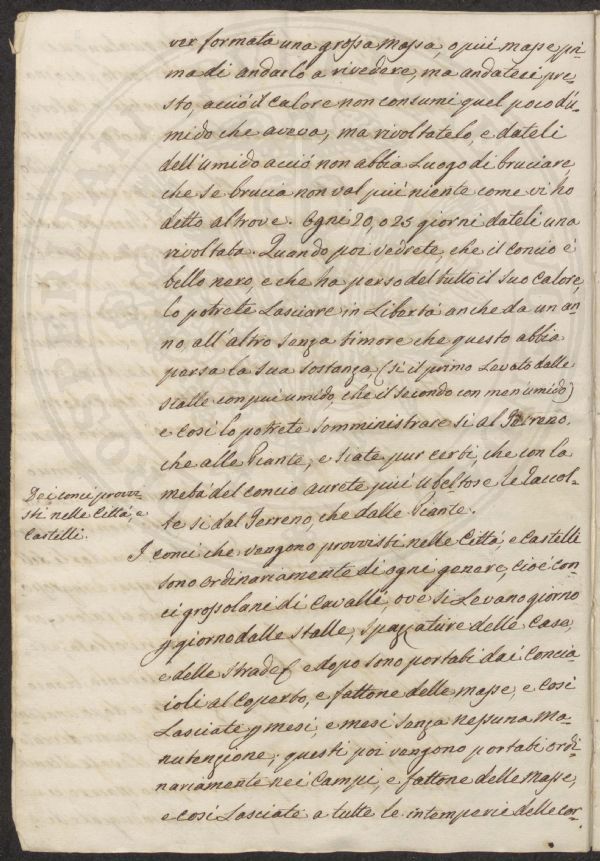 ver formata una grossa massa, o piú masse pri-
ma di andarlo a rivedere, ma andateci pre-
sto, acció il calore non consumi quel poco d'ú-
mido che aveva, ma rivoltatelo, e dateli
dell'umido acció non abbia Luogo di bruciare,
che se brucia non val piú niente come vi ho
detto altrove. Ogni 20, o 25 giorni dateli una
rivoltata. Quando poi vedrete, che il Concio é
bello nero, e che ha perso del tutto il suo Calore,
lo potrete Lasciare in Libertá anche da un an-
no all'altro senza timore che questo abbia
persa la sua sostanza, (si il primo Levato dalle
stalle con piú umido, che il secondo con men'umido)
e cosí lo potrete somministrare sí al Terreno,
che alle Piante, e siate pur certi, che con la
metá del concio aurete piú ubertose le Raccol-
te sí dal Terreno, che dalle Piante.
Dei conci provvi-
sti nelle Cittá, e
Castelli.
I conci che vengono provvisti nelle Cittá, e Castelli
sono ordinariamente di ogni genere, cioé con-
ci grossolani di Cavalli, ove si Levano giorno
p giorno dalle stalle, spazzature delle Case,
e delle strade, e dopo sono portati dai Concia-
ioli al Coperto, e fattone delle masse, e cosí
Lasciate p mesi, e mesi senza nessuna Ma-
nutenzione; questi poi vengono portati ordi-
nariamente nei Campi, e fattone delle Masse,
e cosí Lasciate a tutte le intemperie delle cor-